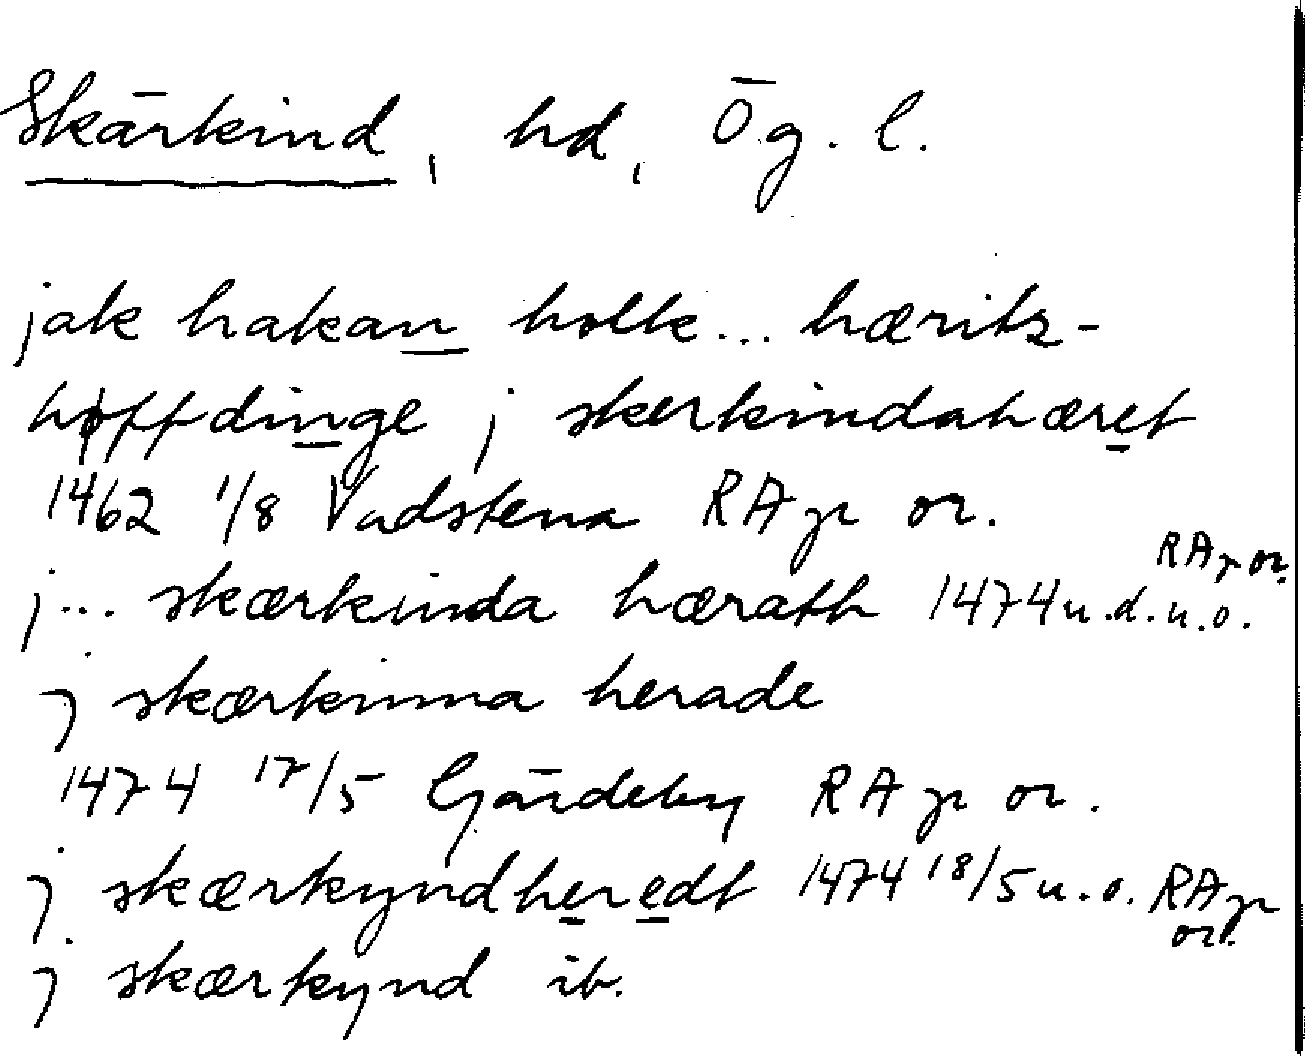 Skärkind, hd, Ög. l.
jak hakan holk... hæritz-
høffdinge j skerkindahæret
1462 1/8 Vadstena RAp or.
j... skærkinda hærath 1474 u.d.u.o. RAp or.
j skærkinna herade
1474 17/5 Gärdeby RAp or.
j skærkyndheredt 1474 18/5 u.o. RAp or.
j skærkynd ib.